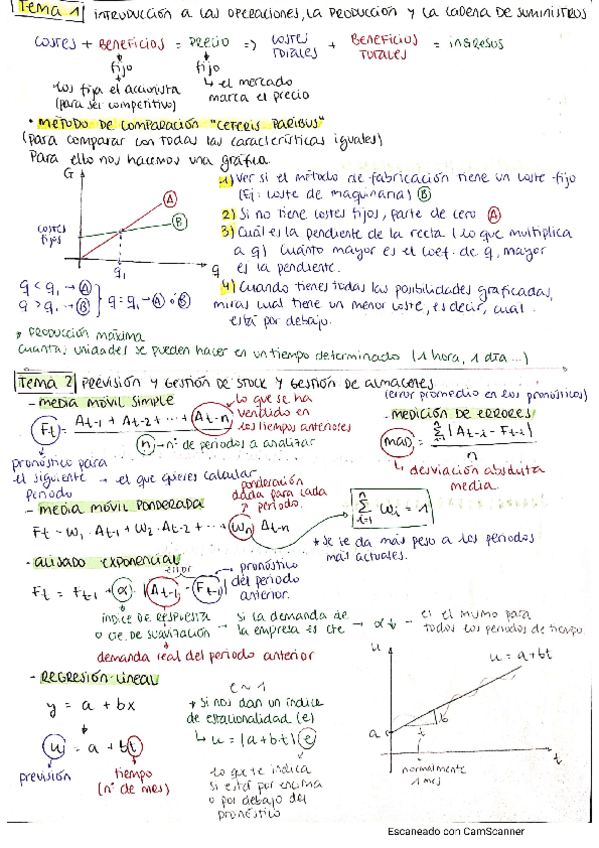 Tema 1 introducción a las operaciones, la producción y la cadena de suministros
costes + Beneficios = Precio => costes totales + Beneficios totales = ingresos
fijo
fijo
los fija el accionista
(para ser competitivo)
el mercado
marca el precio
• MÉTODO DE COMPARACIÓN "CETERIS PARIBUS"
(para comparar con todas las características iguales)
Para ello nos hacemos una gráfica.
G
costes
fijos
A
B
q1
q
1) Ver si el método de fabricación tiene un coste fijo
(Ej: coste de maquinaria) B
2) Si no tiene costes fijos, parte de cero A
3) Cuál es la pendiente de la recta (lo que multiplica
a q) cuánto mayor es el coef. de q, mayor
es la pendiente.
4) Cuando tienes todas las posibilidades graficadas,
miras cual tiene un menor coste, es decir, cual
está por debajo.
q < q1 → A
q > q1 → B
q = q1 → A o B
* PRODUCCIÓN MÁXIMA
cuantas unidades se pueden hacer en un tiempo determinado (1 hora, 1 dia...)
Tema 2 Previsión y gestión de stock y gestión de almacenes
- MEDIA MÓVIL SIMPLE
lo que se ha
vendido en
los tiempos anteriores
Ft = At-1 + At-2 + ... + At-n
n → nº de periodos a analizar
pronóstico para
el siguiente → el que quieres calcular
periodo
(error promedio en los pronósticos)
- MEDICIÓN DE ERRORES
MAD = Σ |At-i - Ft-i|
n
desviación absoluta
media.
- MEDIA MÓVIL PONDERADA
ponderación
dada para cada
periodo.
Ft = W1 · At-1 + W2 · At-2 + ... + Wn At-n
n Σ i=1 Wi = 1
* se le da más peso a los periodos
más actuales.
- ALISADO EXPONENCIAL
error
pronóstico
del periodo
anterior.
Ft = Ft-1 + α · (At-1 - Ft-1)
ÍNDICE DE RESPUESTA
o cte. de suavización → si la demanda de
la empresa es cte → α ↓ → es el mismo para
todos los periodos de tiempo.
demanda real del periodo anterior
- REGRESIÓN LINEAL
y = a + bx
u = a + bt
previsión
tiempo
(nº de mes)
e ~ 1
* Si nos dan un índice
de estacionalidad (e)
u = (a + bt) e
lo que te indica
si estás por encima
o por debajo del
pronóstico
u
u = a + bt
b
a
t
1
normalmente
1 mes
Escaneado con CamScanner